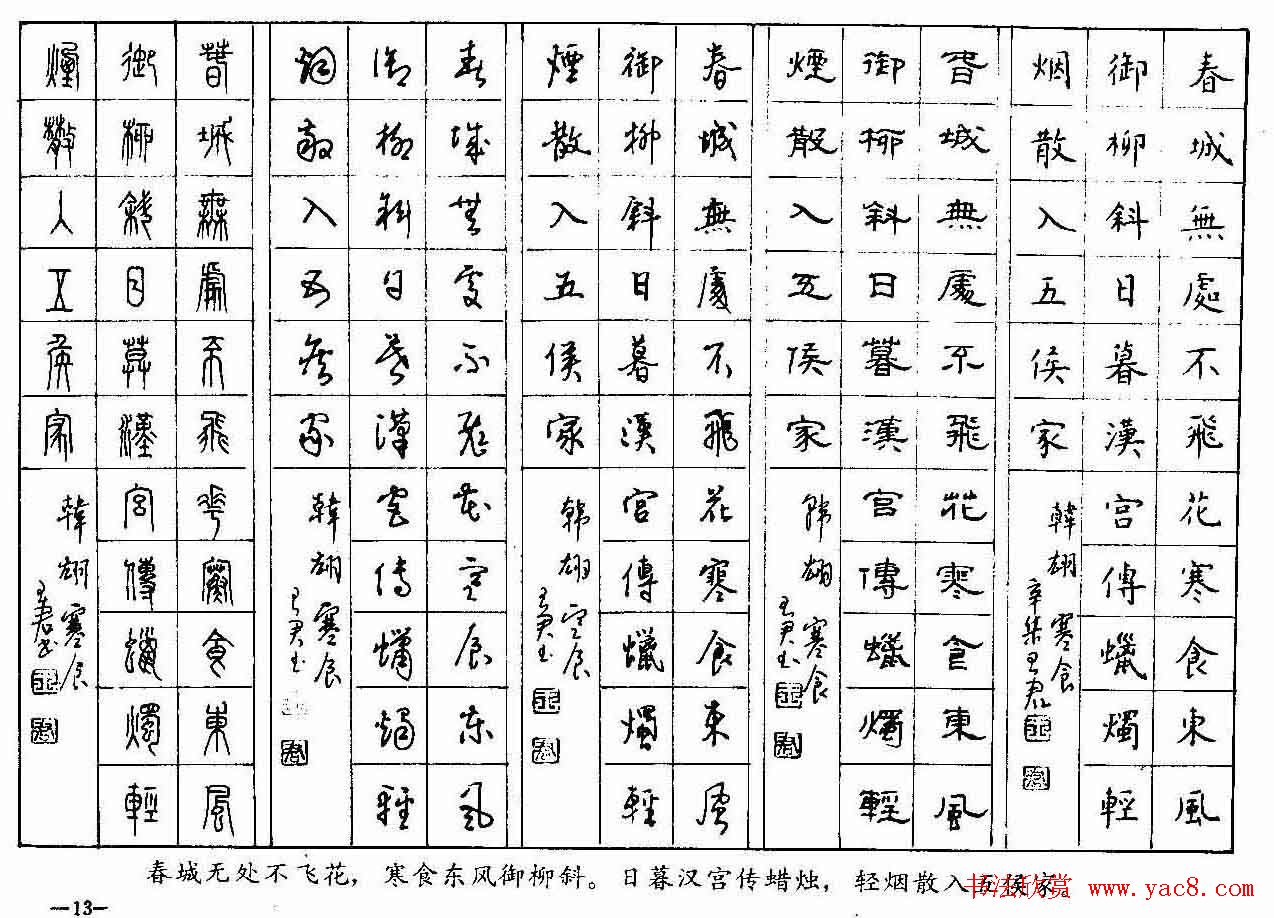 春城無處不飛花寒食東風
御柳斜日暮漢宮傳蠟燭輕
烟散入五侯家
韓翃寒食
辛集王君
春城無處不飛花寒食東風
御柳斜日暮漢宮傳蠟燭輕
煙散入五侯家
韓翃寒食
王君书
春城無處不飛花寒食東風
御柳斜日暮漢宮傳蠟燭輕
煙散入五侯家
韓翃寒食
王君书
春城無處不飛花寒食東風
御柳斜日暮漢宮傳蠟燭輕
烟散入五侯家
韓翃寒食
王君书
春城無處不飛花寒食東風
御柳斜日暮漢宮傳蠟燭輕
煙散入五侯家
韓翃寒食
王君书
春城无处不飞花，寒食东风御柳斜。日暮汉宫传蜡烛，轻烟散入五侯家。
书法欣赏 www.yac8.com
—13—